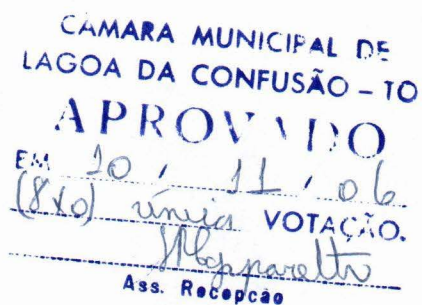 CÂMARA MUNICIPAL DE
LAGOA DA CONFUSÃO – TO
APROVADO
EM 10 / 11 / 06
(8x0) única VOTAÇÃO.
Ass. Recepcão